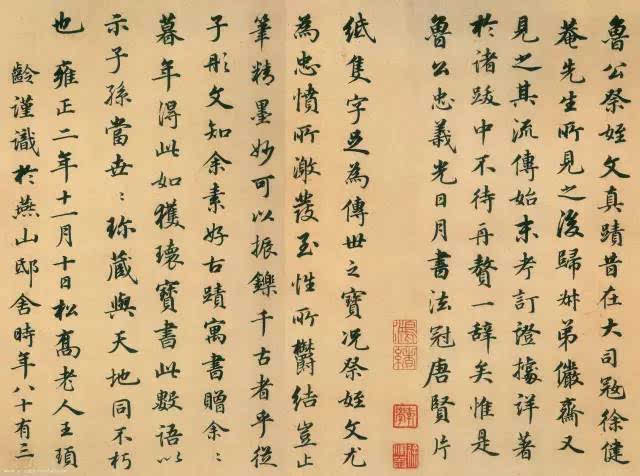 魯公祭姪文真蹟昔在大司寇徐健
菴先生所見之後歸姊弟儼齋又
見之其流傳始末考訂證據詳著
於諸跋中不待再贅一辭矣惟是
魯公忠義光日月書法冠唐賢片
紙隻字足為傳世之寶況祭姪文尤
為忠憤所激發至性所鬱結豈止
筆精墨妙可以振鑠千古者乎從
子彤文知余素好古蹟寓書贈余:
暮年得此如獲瓌寶書此數語以
示子孫當世:珍藏與天地同不朽
也 雍正二年十一月十日松喬老人王頊
齡謹識於燕山邸舍時年八十有三